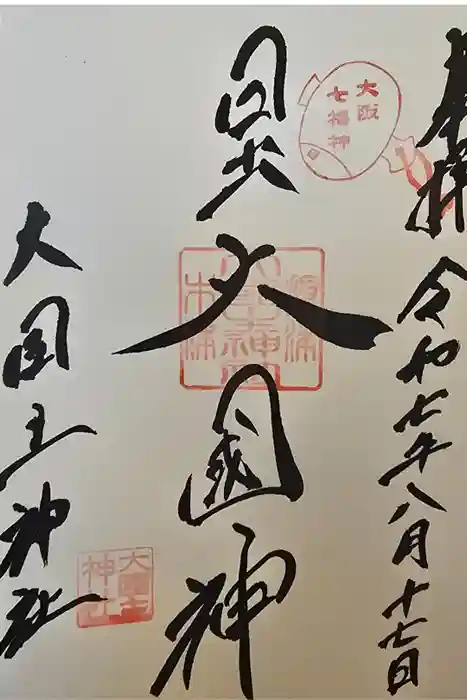 奉拝
令和七年八月十七日
大阪
七福神
日出大國神
大国主神社
大國主
神社